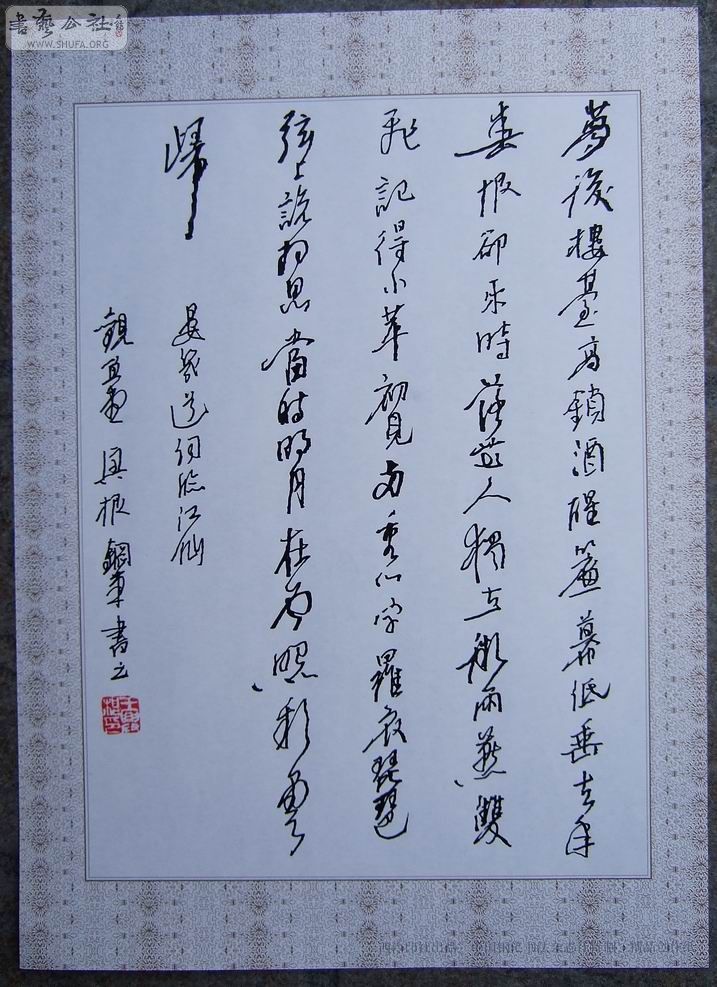 夢後樓臺高鎖酒醒簾幕低垂去年
春恨卻來時落花人獨立微雨燕雙
飛記得小蘋初見兩重心字羅衣琵琶
弦上說相思當時明月在曾照彩雲
歸
晏幾道詞臨江仙
觀 根鋼筆書之
書藝公社
WWW.SHUFA.ORG